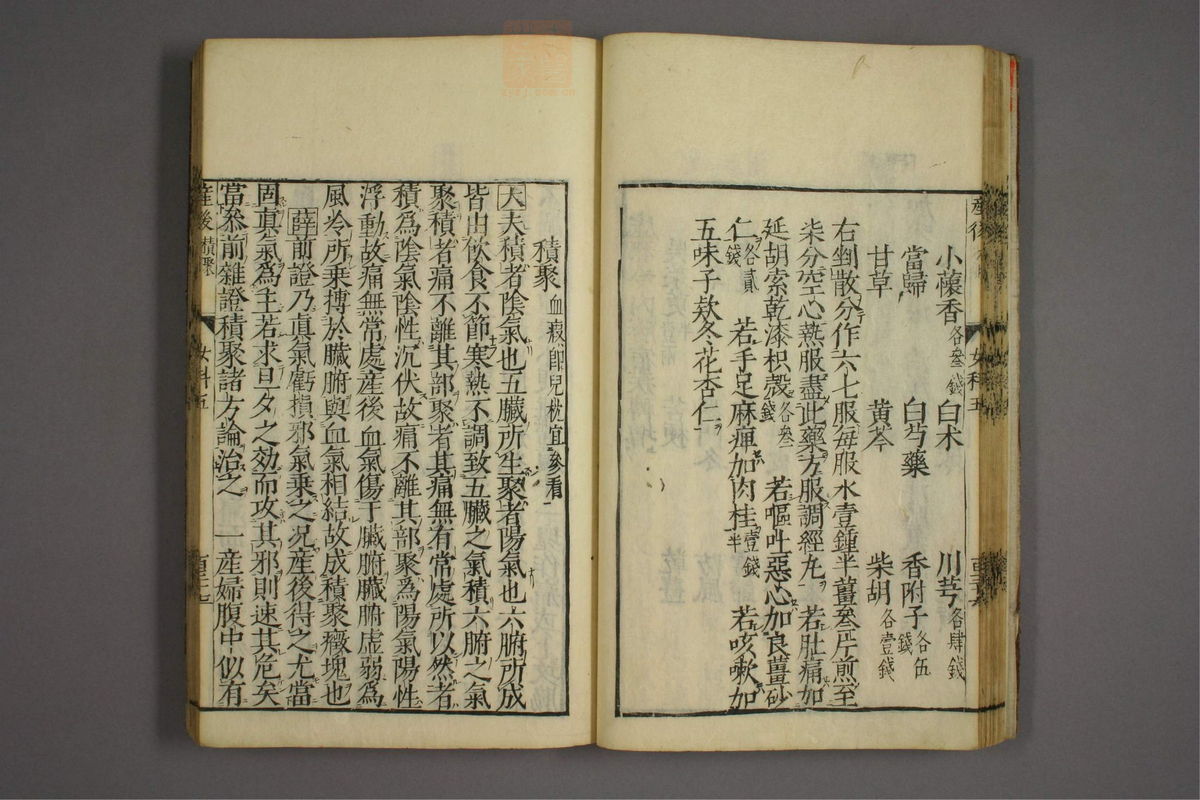 小蘹香各叁錢 白朮 川芎各肆錢
當歸 白芍藥 香附子各伍錢
甘草 黄芩 柴胡各壹錢
右剉散分作六七服每服水壹鍾半薑叁片煎至
柒分空心熱服盡此藥方服調經丸 若肚痛加
延胡索乾漆枳殼各叁錢 若嘔吐惡心加良薑砂
仁各貳錢 若手足麻痺加肉桂壹錢半 若咳嗽加
五味子欵冬花杏仁
積聚血瘕即兒枕宜參看
大夫積者陰氣也五臟所生聚者陽氣也六腑所成
皆由飲食不節寒熱不調致五臟之氣積六腑之氣
聚積者痛不離其部聚者其痛無有常處所以然者
積爲陰氣陰性沉伏故痛不離其部聚爲陽氣陽性
浮動故痛無常處產後血氣傷于臟腑臟腑虛弱爲
風冷所乘搏於臟腑與血氣相結故成積聚癥塊也
薛前證乃真氣虧損邪氣乘之况產後得之尤當
固真氣爲主若求旦夕之効而攻其邪則速其危矣
當叅前雜證積聚諸方論治之 一產婦腹中似有
產後 積聚 女科五